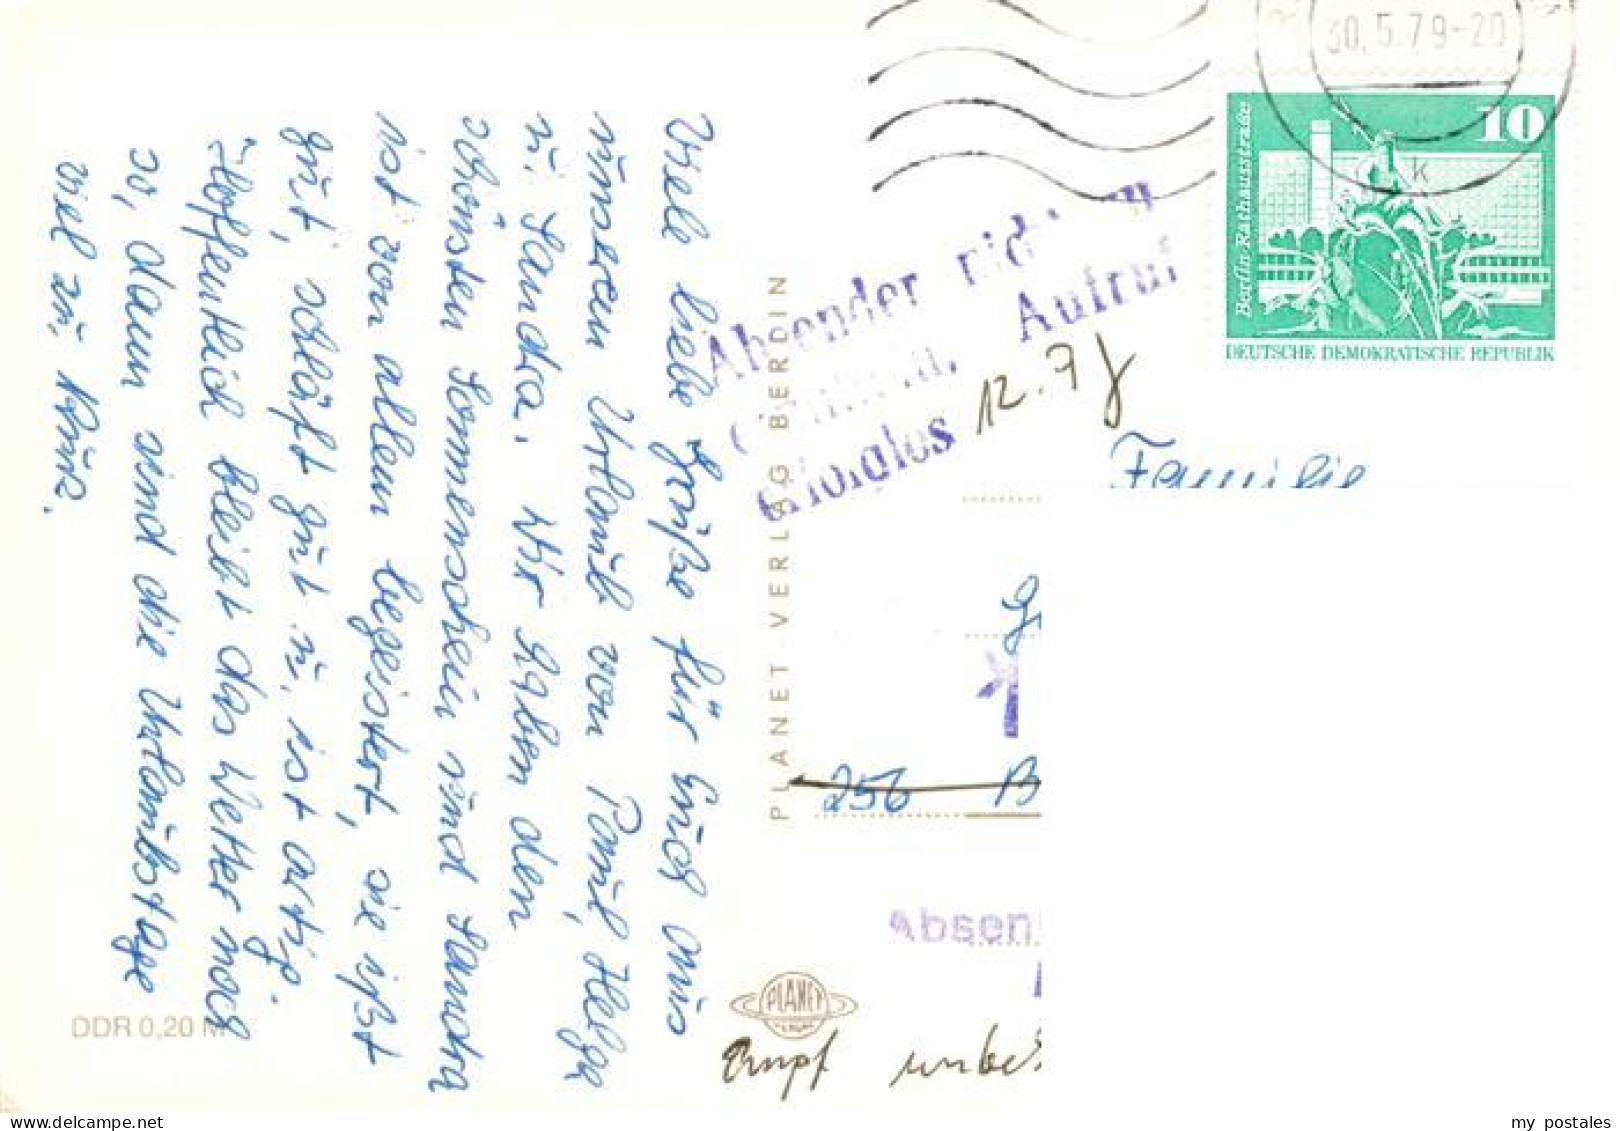 Viele liebe Grüße für Euch aus
unseren Urlaub von Paul, Helga
u. Sandra. Wir haben den
schönsten Sonnenschein und Sandra
ist von allem begeistert, sie ißt
gut, schläft gut u. ist artig.
Hoffentlich bleibt das Wetter noch
so, dann sind die Urlaubstage
viel zu kurz.
DDR 0,20 M
PLANET-VERLAG BERLIN
PLANET
30.5.79-20
k
10
Berlin-Rathausstraße
DEUTSCHE DEMOKRATISCHE REPUBLIK
Absender
Aufruf
erfolglos
12.7
Familie
256 B
Absen
Empf unbek
my postales